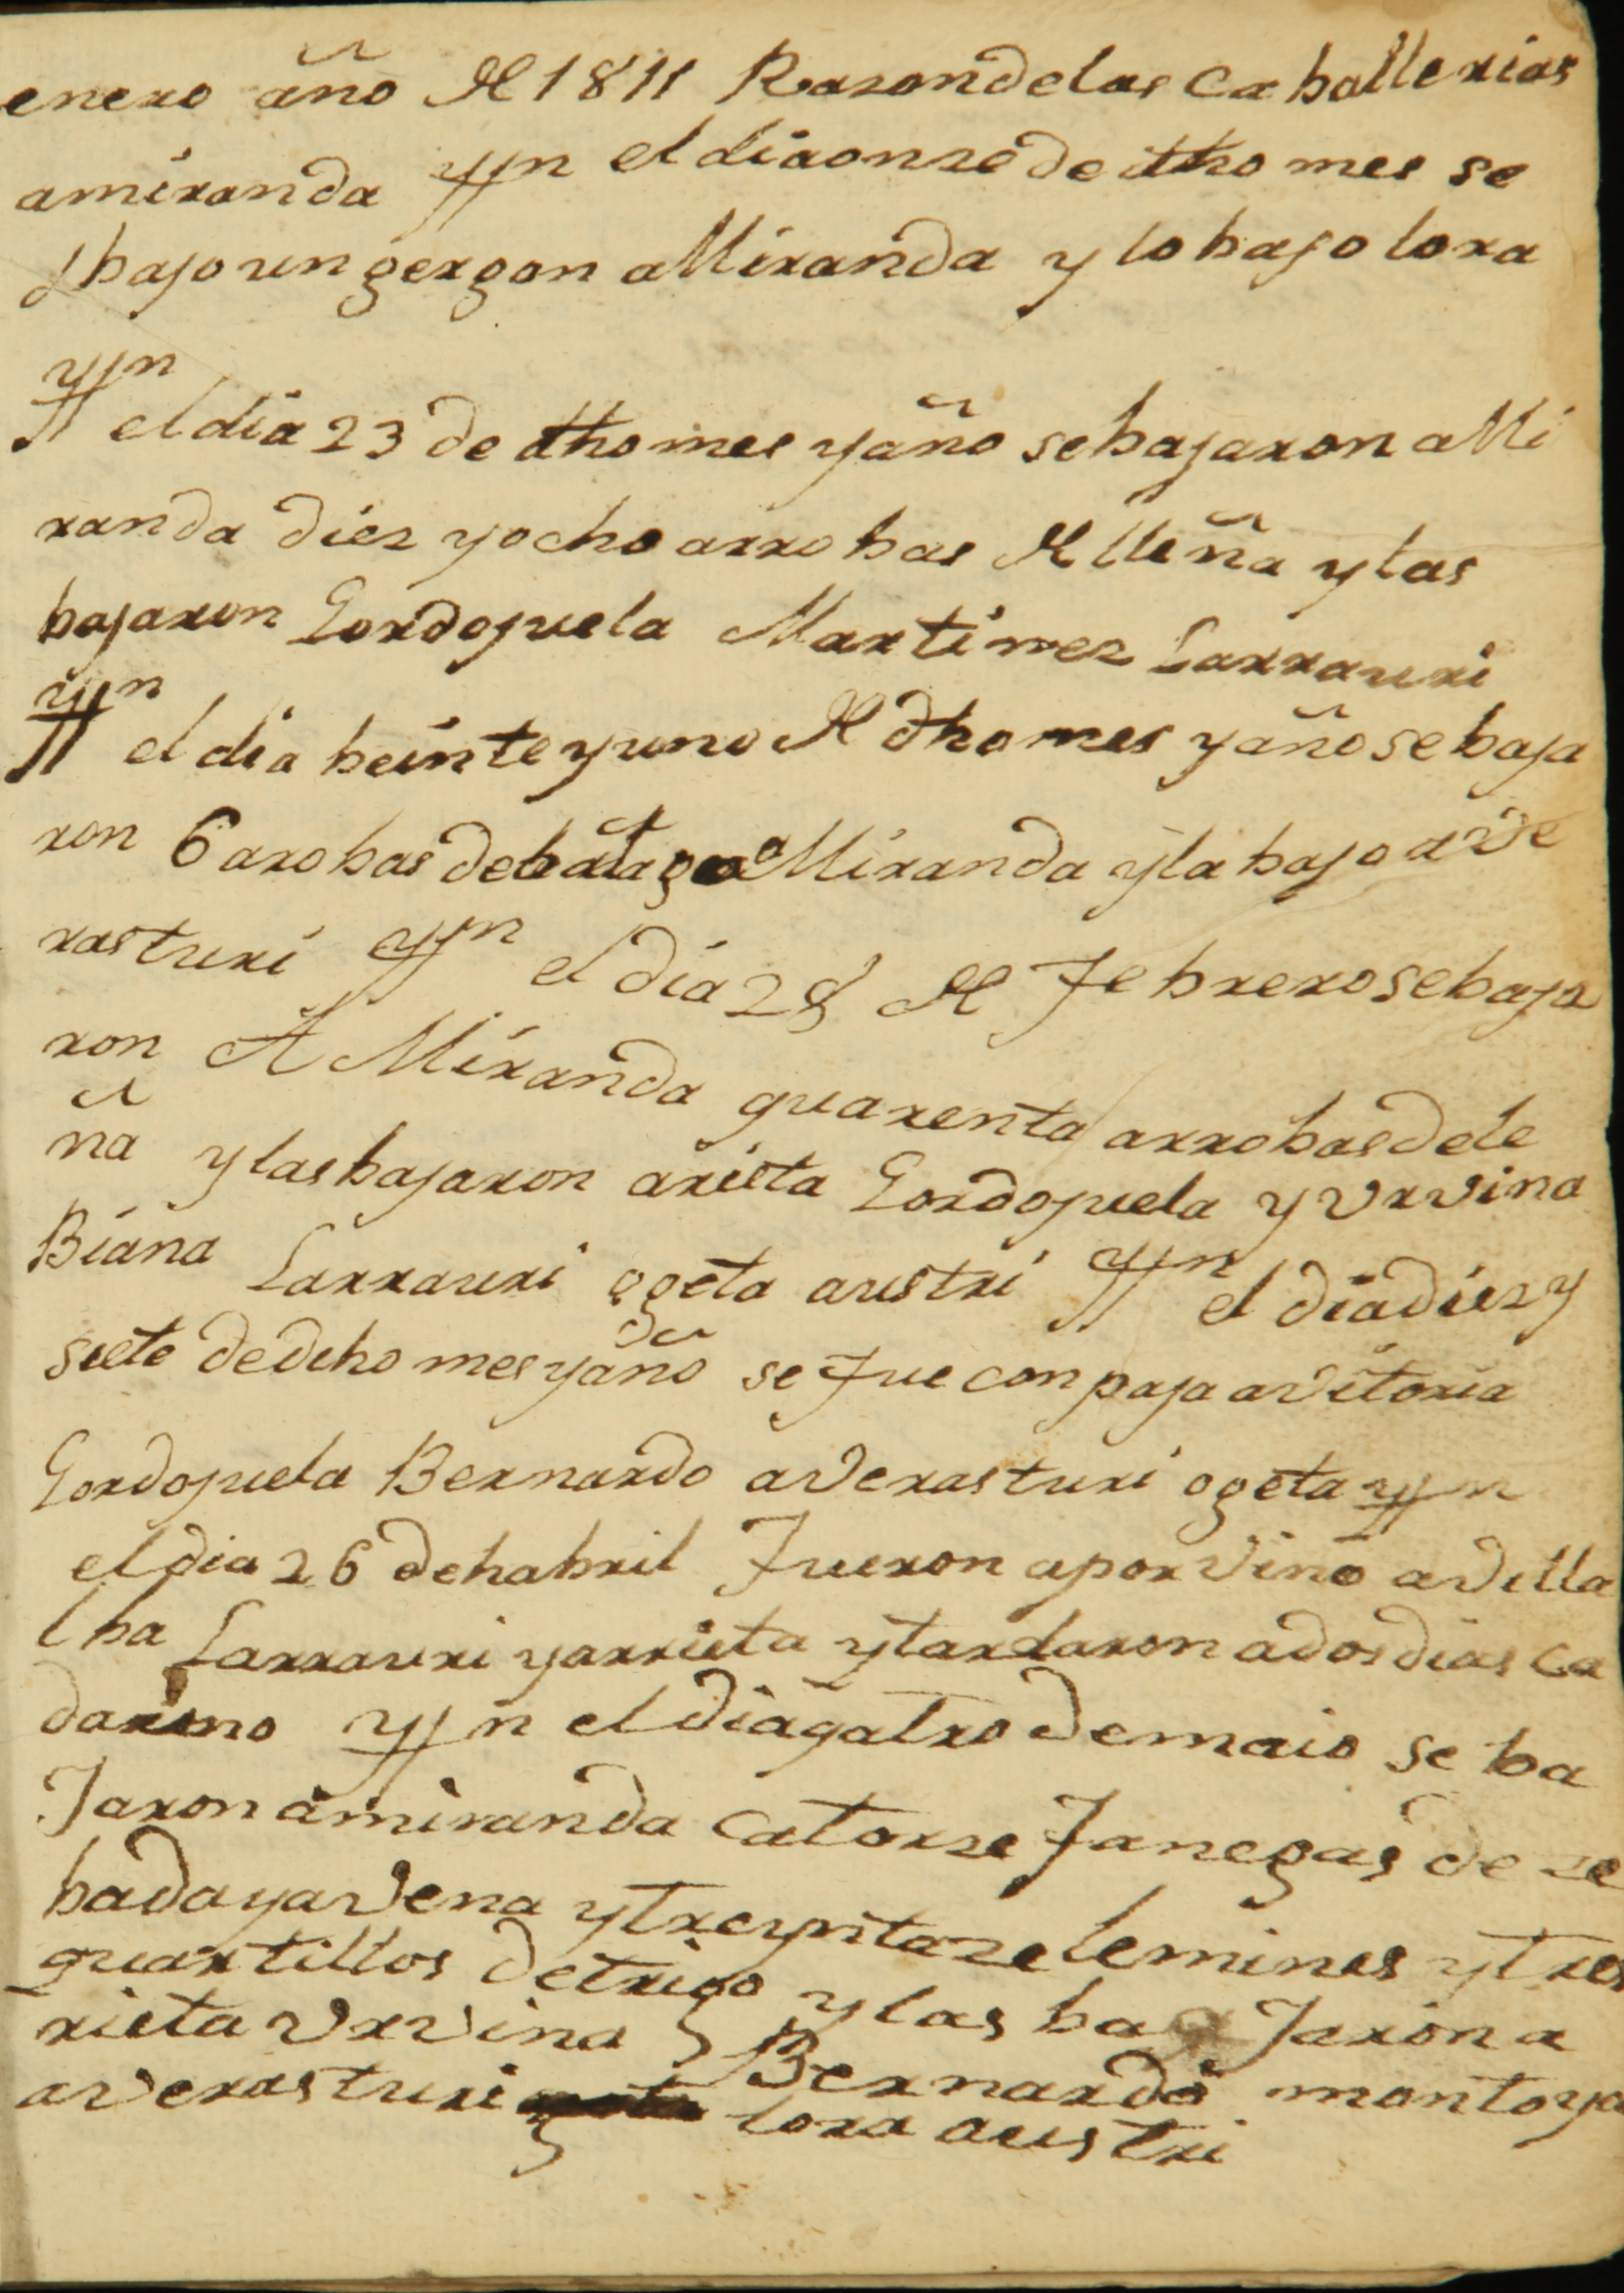 enero año de 1811 Rason de las Caballerias
amiranda yttn el dia onze de dho mes se
bajo un gergon a Miranda y lo bajo lora
yttn el dia 23 de dho mes y año se bajaron a Mi
randa diez y ocho arrobas de lleña y las
bajaron Gordojuela Martinez Larrauri
yttn el dia beinte y uno de dho mes y año se baja
ron 6 arobas de a Miranda y la bajo a Ve
rasturi yttn el dia 28 de Febrero se baja
ron A Miranda quarenta arrobas de le
ña y las bajaron arieta Gordojuela y Urvina
Biana Larrauri ogeta austri yttn el dia diez y
siete de dicho mes y año se fue con paja a Vitoria
Gordojuela Bernardo a Verasturi ogeta yttn
el dia 26 de habril Fueron a por Vino a Villa
lba Larrauri y arrieta y tardaron a dos dias ca
da uno yttn el dia qatro de maio se ba
Jaron a miranda Catorze Fanegas de ze
bada y a Vena y treynta zelemines y tres
quartillos de trigo y las ba Jaron a
rieta Urvina Bernardo montoya
a Verasturi lora austri